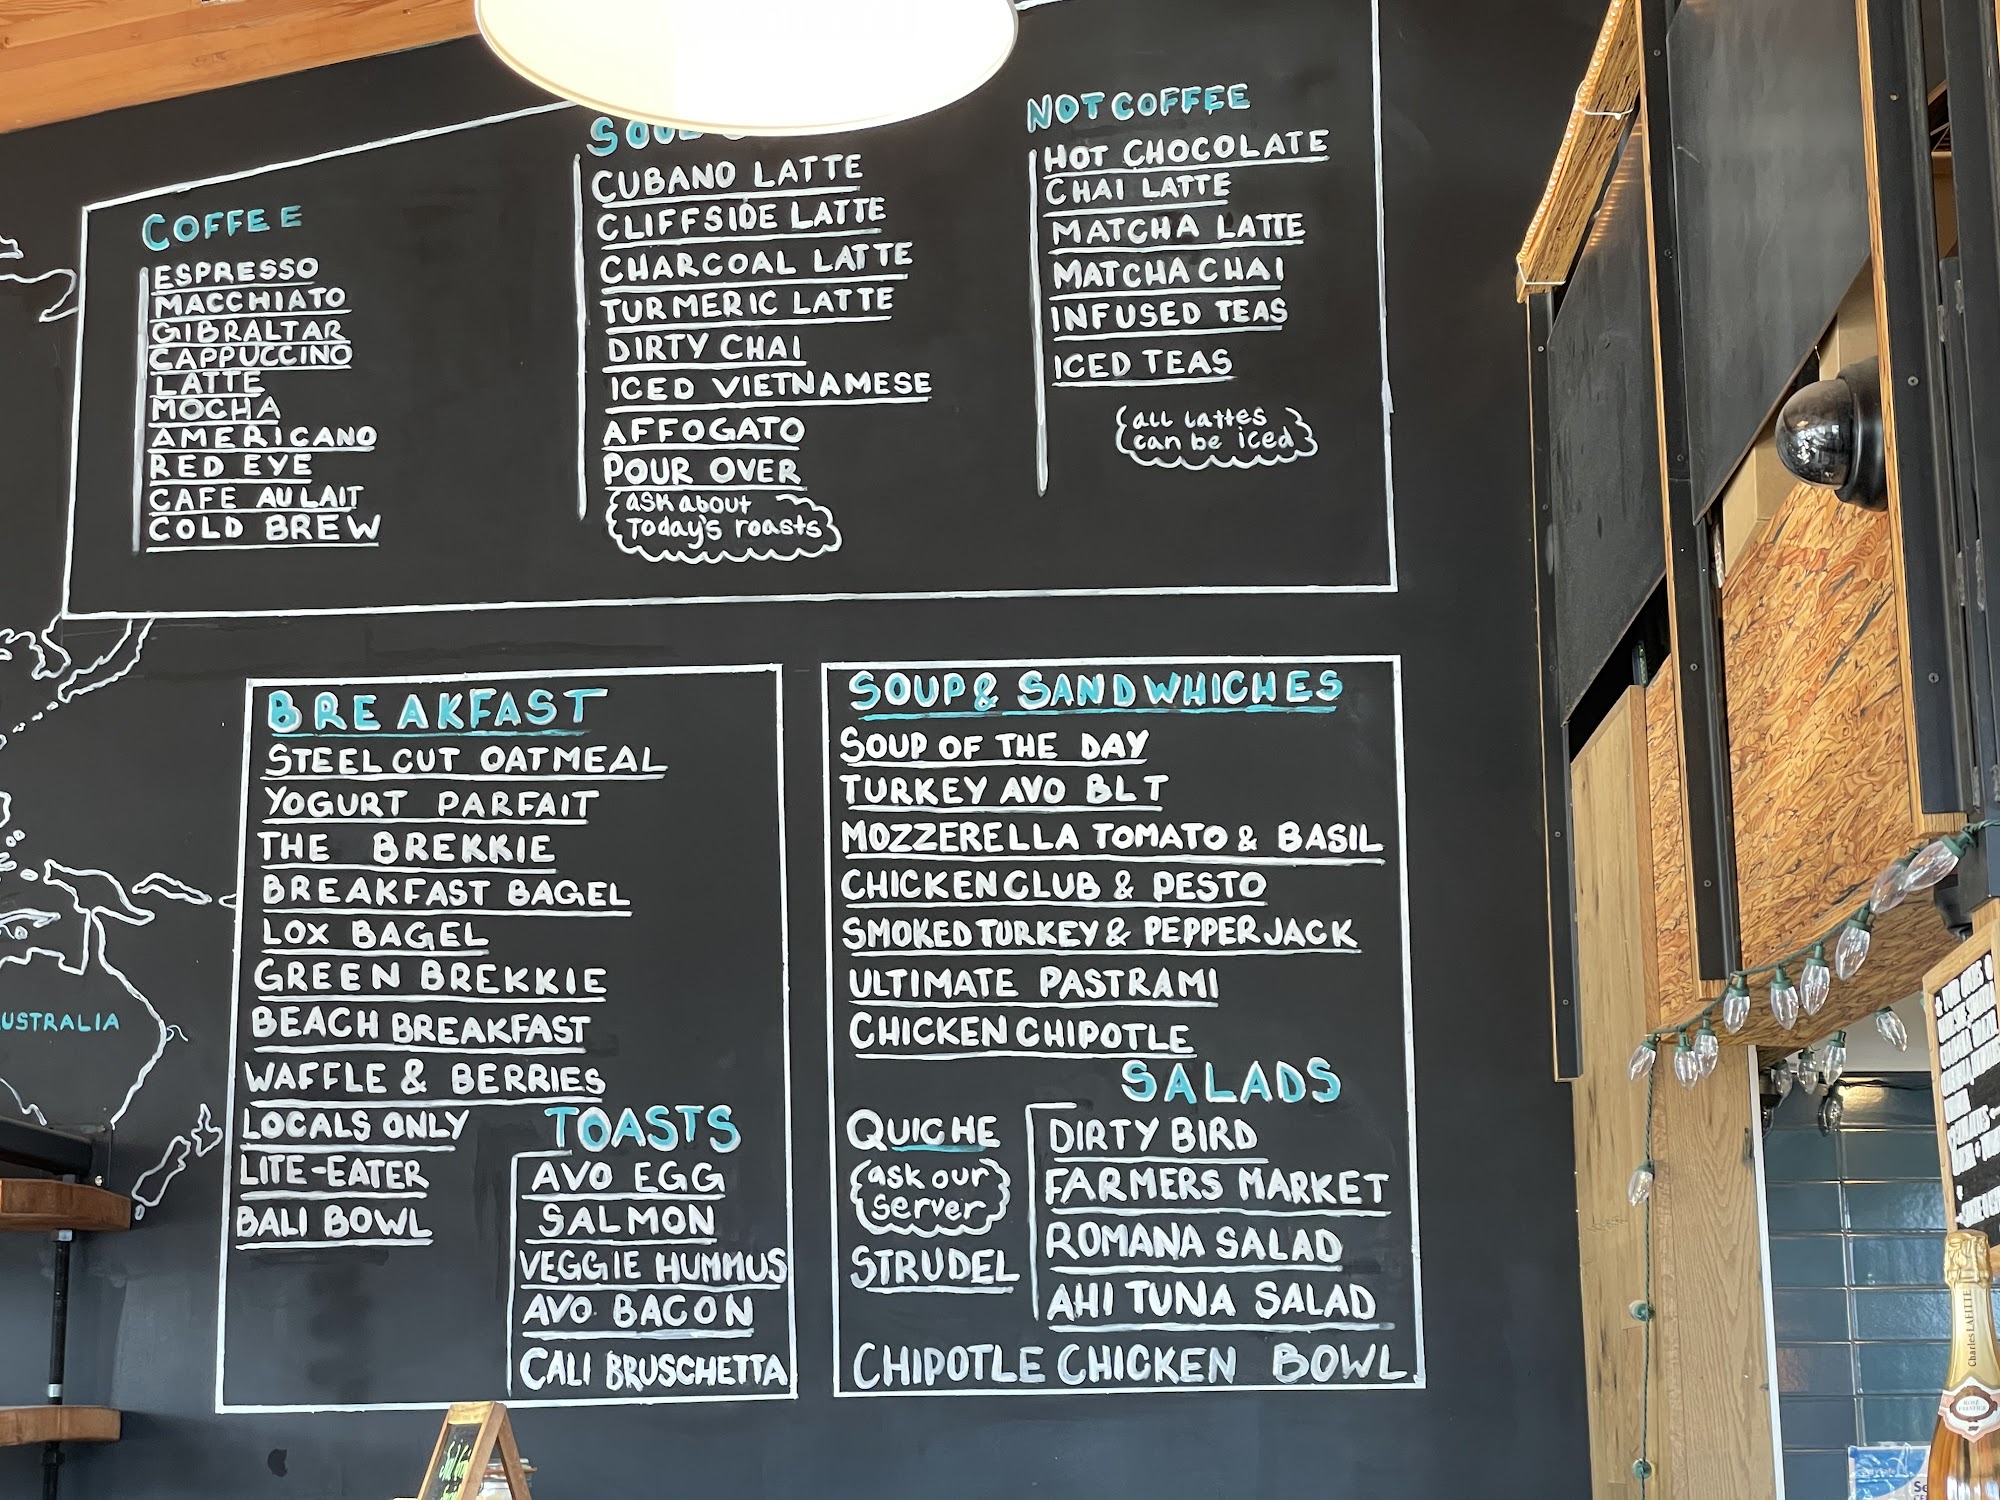 COFFEE
ESPRESSO
MACCHIATO
GIBRALTAR
CAPPUCCINO
LATTE
MOCHA
AMERICANO
RED EYE
CAFE AU LAIT
COLD BREW
CUBANO LATTE
CLIFFSIDE LATTE
CHARCOAL LATTE
TURMERIC LATTE
DIRTY CHAI
ICED VIETNAMESE
AFFOGATO
POUR OVER
ask about
Today's roasts
NOT COFFEE
HOT CHOCOLATE
CHAI LATTE
MATCHA LATTE
MATCHA CHAI
INFUSED TEAS
ICED TEAS
all lattes
can be iced
USTRALIA
BREAKFAST
STEEL CUT OATMEAL
YOGURT PARFAIT
THE BREKKIE
BREAKFAST BAGEL
LOX BAGEL
GREEN BREKKIE
BEACH BREAKFAST
WAFFLE & BERRIES
LOCALS ONLY
LITE-EATER
BALI BOWL
TOASTS
AVO EGG
SALMON
VEGGIE HUMMUS
AVO BACON
CALI BRUSCHETTA
SOUP & SANDWHICHES
SOUP OF THE DAY
TURKEY AVO BLT
MOZZERELLA TOMATO & BASIL
CHICKEN CLUB & PESTO
SMOKED TURKEY & PEPPER JACK
ULTIMATE PASTRAMI
CHICKEN CHIPOTLE
QUICHE
ask our
server
STRUDEL
SALADS
DIRTY BIRD
FARMERS MARKET
ROMANA SALAD
AHI TUNA SALAD
CHIPOTLE CHICKEN BOWL
Charles LAFITTE